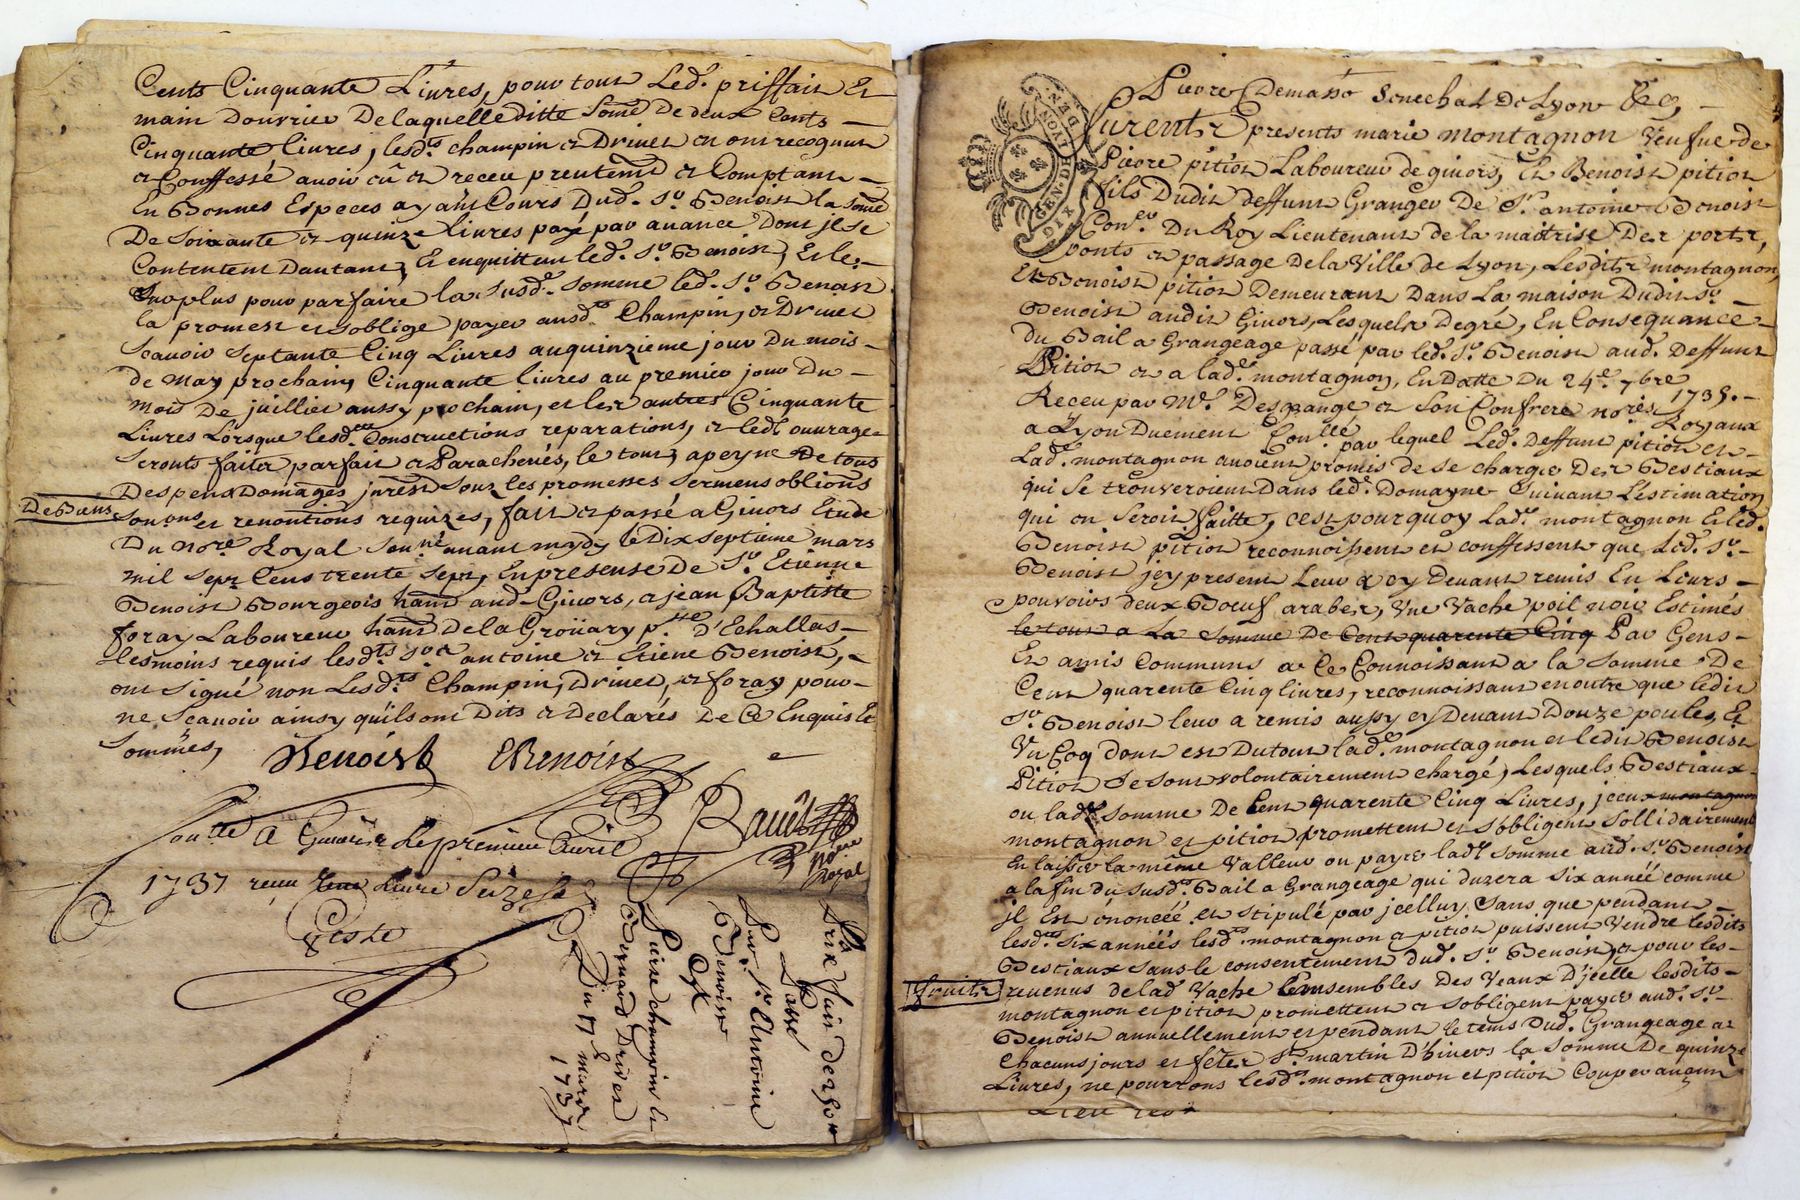 Cents Cinquante Livres, pour tout Led. priffait Et
main Douvrier De laquelle ditte Somē De deux Cents
Cinquante livres, lesd.ts champin et Drivet en ont recognut
et Confessé avoir eû et receu prentemt et Comptant
En Bonnes Especes ayant Cours Dud. Sr. Benoist la Somē
De Soixante et quinze livres payé par avance Dont jl se
Contentent Dautant, Et en quittent led. Sr. Benoist, Et le
Surplus pour parfaire la susd.e Somme led. Sr. Benoist
la promest et soblige payer ausd.ts Champin, et Drivet
Scavoir Septante Cinq Livres au quinzieme jour Du mois
de May prochain, Cinquante livres au premier jour Du
mois De juillet aussy prochain, et les autres Cinquante
Livres Lorsque lesd. Constructions reparations, et led. ouvrage
Seronts faites parfait et Paracheués, le tout, a peyne De tous
Despens Domages jnrest sous les promesses sermens oblions
De Biens
Soûons et renontions requizes, fait et passé a Givors Etude
Du nore Royal Sou.né avant mydy le Dix septieme mars
mil Sept Cens trente sept, En presense De Sr. Etienne
Benoist Bourgeois hant aud. Givors, et jean Baptiste
foray Laboureur hant De la Groüary p.sse D'Echallas
tesmoins requis lesd.ts Srs antoine et Etiene Benoist,
ont Signé non Lesd.ts Champin, Drivet, et foray pour
ne Scavoir ainsy quils ont Dits et Declarés De Ce Enquis Et
Sommés,
Benoist EBenoist
Ravat
nore royal
Contlé A Givors Le premier Avril
1737 receu Livre Seize s
Geste
Prix fait de 250 #
Passé
Par Sr. Antoine
Benoist
Et
Pierre champin et
Bernard Drivet
Du 17e mars
1737
Pierre Demasso Senechal De Lyon &c,
GEN. DE LYON
DIX DEN.
Furent Presents marie montagnon Veufue de
Pierre pitiot Laboureur de givors, Et Benoist pitiot
fils Dudit deffunt Granger De Sr. antoine Benoist
Con.er Du Roy Lieutenant de la maitrise Des ports,
ponts et passage De la Ville de Lyon, Lesdits montagnon,
Et Benoist pitiot Demeurant Dans La maison Dudit Sr.
Benoist audit Givors, Lesquels De gré, En Consequance
Du Bail a Grangeage passé par led. Sr. Benoist aud. Deffunt
Pitiot et a lad.e montagnon, En Datte Du 24e. 7bre 1735.
Receu par Me. Desgrange et Son Confrere nores Royaux
a Lyon Duement Conllé par lequel Led. Deffunt pitiot et
Lad.e montagnon avoient promis de se charger Des Bestiaux
qui se trouveroient Dans led. Domayne Suivant L'estimation
qui en Seroit faitte, cest pourquoy lad.e montagnon Et led.
Benoist pitiot reconnoissent et confessent que Led. Sr.
Benoist jcy present Leur a cy devant remis En Leurs
pouvoirs deux Bœufs arabes, Une Vache poil noir Estimés
le tout a La Somme De Cent quarente Cinq Par Gens
Et amis Communs a Ce Connoissant a la Somme De
Cent quarente Cinq livres, reconnoissant en outre que ledit
Sr. Benoist leur a remis aussy cy Devant Douze poules, Et
Un Coq dont est Du tout lad.e montagnon et ledit Benoist
Pitiot Se sont volontairement chargé, Lesquels Bestiaux
ou lad.e Somme De Cent quarente Cinq Livres, jceux montagnon
montagnon et pitiot promettent et s'obligent Sollidairement
En laisser la même Valleur ou payer lad.e Somme aud. Sr. Benoist
a la fin du susd. Bail a Grangeage qui durera six année comme
jl Est énoncéé et stipulé par jcelluy Sans que pendant
lesd.es six annéés lesd.ts montagnon et pitiot puissent Vendre lesdits
Bestiaux sans le consentement Dud. Sr. Benoist, et pour les
fruits
revenus de lad. Vache Ensembles Des Veaux D'jcelle lesdits
montagnon et pitiot promettent et s'obligent payer aud. Sr.
Benoist annuellement et pendant le tems Dud. Grangeage et
Chacuns jours et fêtes St. martin D'hivers la somme De quinze
Livres, ne pourrons lesd.ts montagnon et pitiot Couper aucun